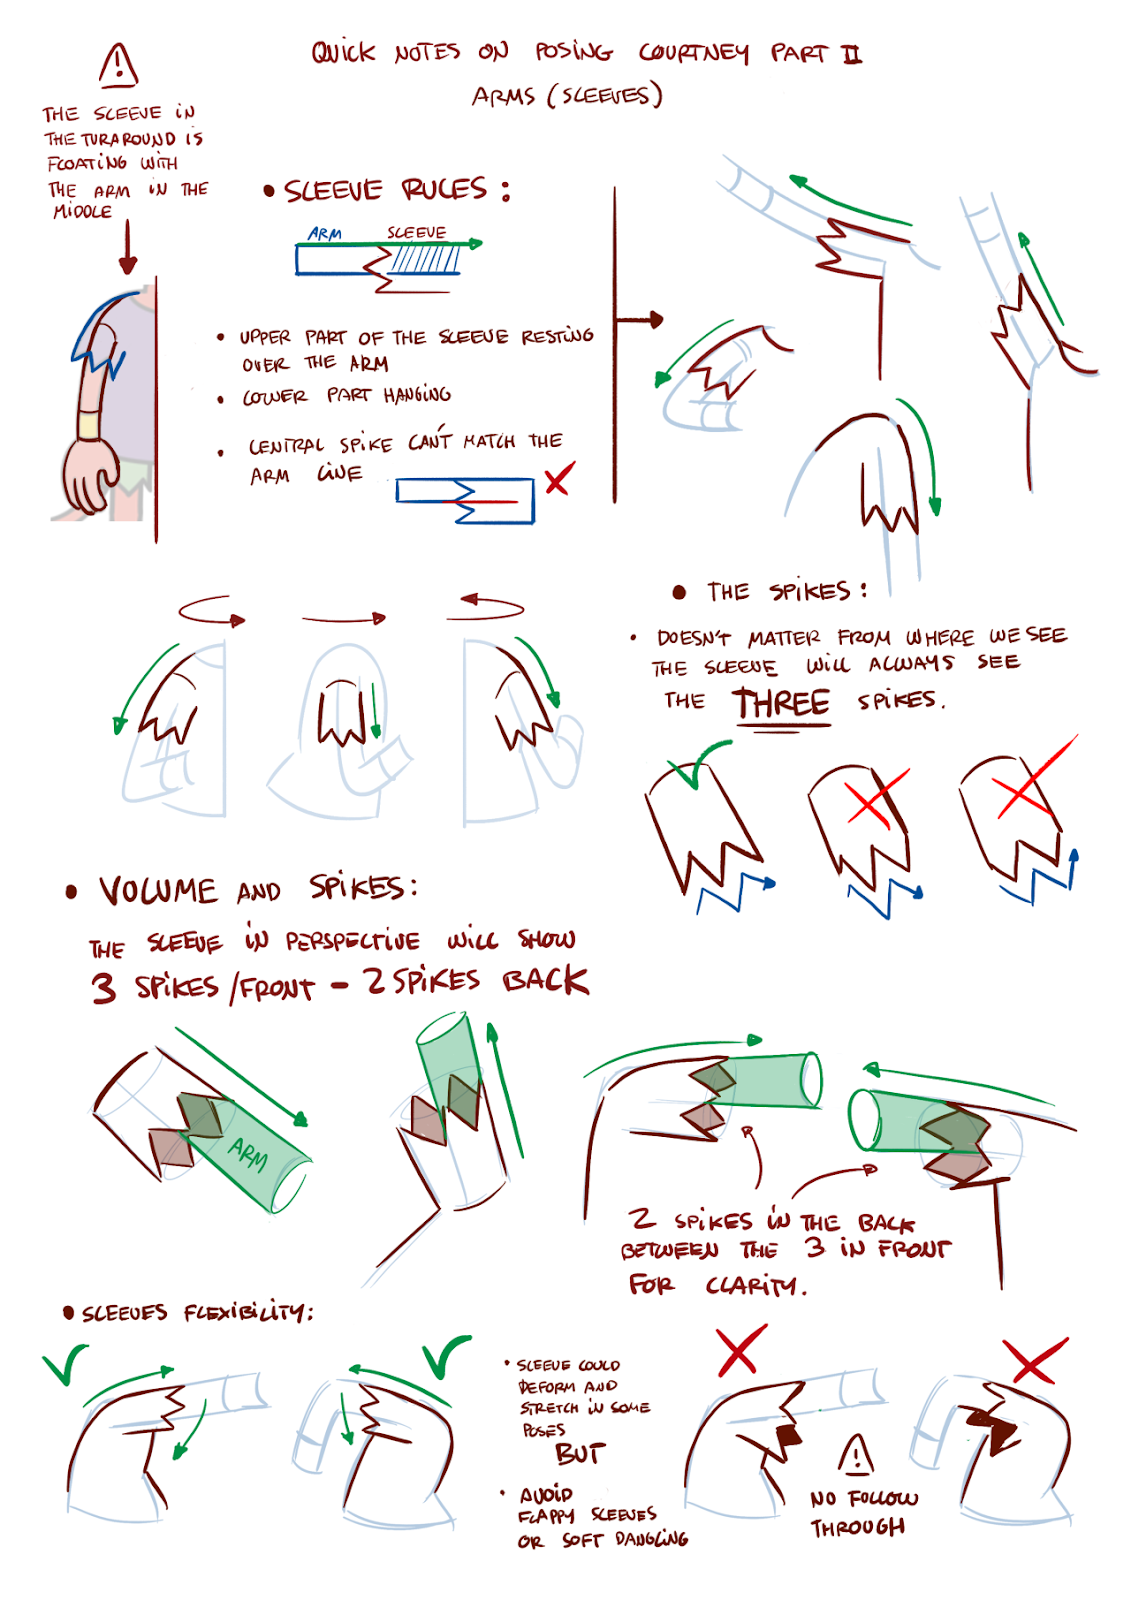 QUICK NOTES ON POSING COURTNEY PART II
ARMS (SLEEVES)
THE SLEEVE IN
THE TURAROUND IS
FLOATING WITH
THE ARM IN THE
MIDDLE
• SLEEVE RULES:
ARM SLEEVE
• UPPER PART OF THE SLEEVE RESTING
OVER THE ARM
• LOWER PART HANGING
• CENTRAL SPIKE CAN'T MATCH THE
ARM LINE
• THE SPIKES:
• DOESN'T MATTER FROM WHERE WE SEE
THE SLEEVE WILL ALWAYS SEE
THE THREE SPIKES.
• VOLUME AND SPIKES:
THE SLEEVE IN PERSPECTIVE WILL SHOW
3 SPIKES/FRONT - 2 SPIKES BACK
ARM
2 SPIKES IN THE BACK
BETWEEN THE 3 IN FRONT
FOR CLARITY.
• SLEEVES FLEXIBILITY:
• SLEEVE COULD
DEFORM AND
STRETCH IN SOME
POSES
BUT
• AVOID
FLAPPY SLEEVES
OR SOFT DANGLING
NO FOLLOW
THROUGH